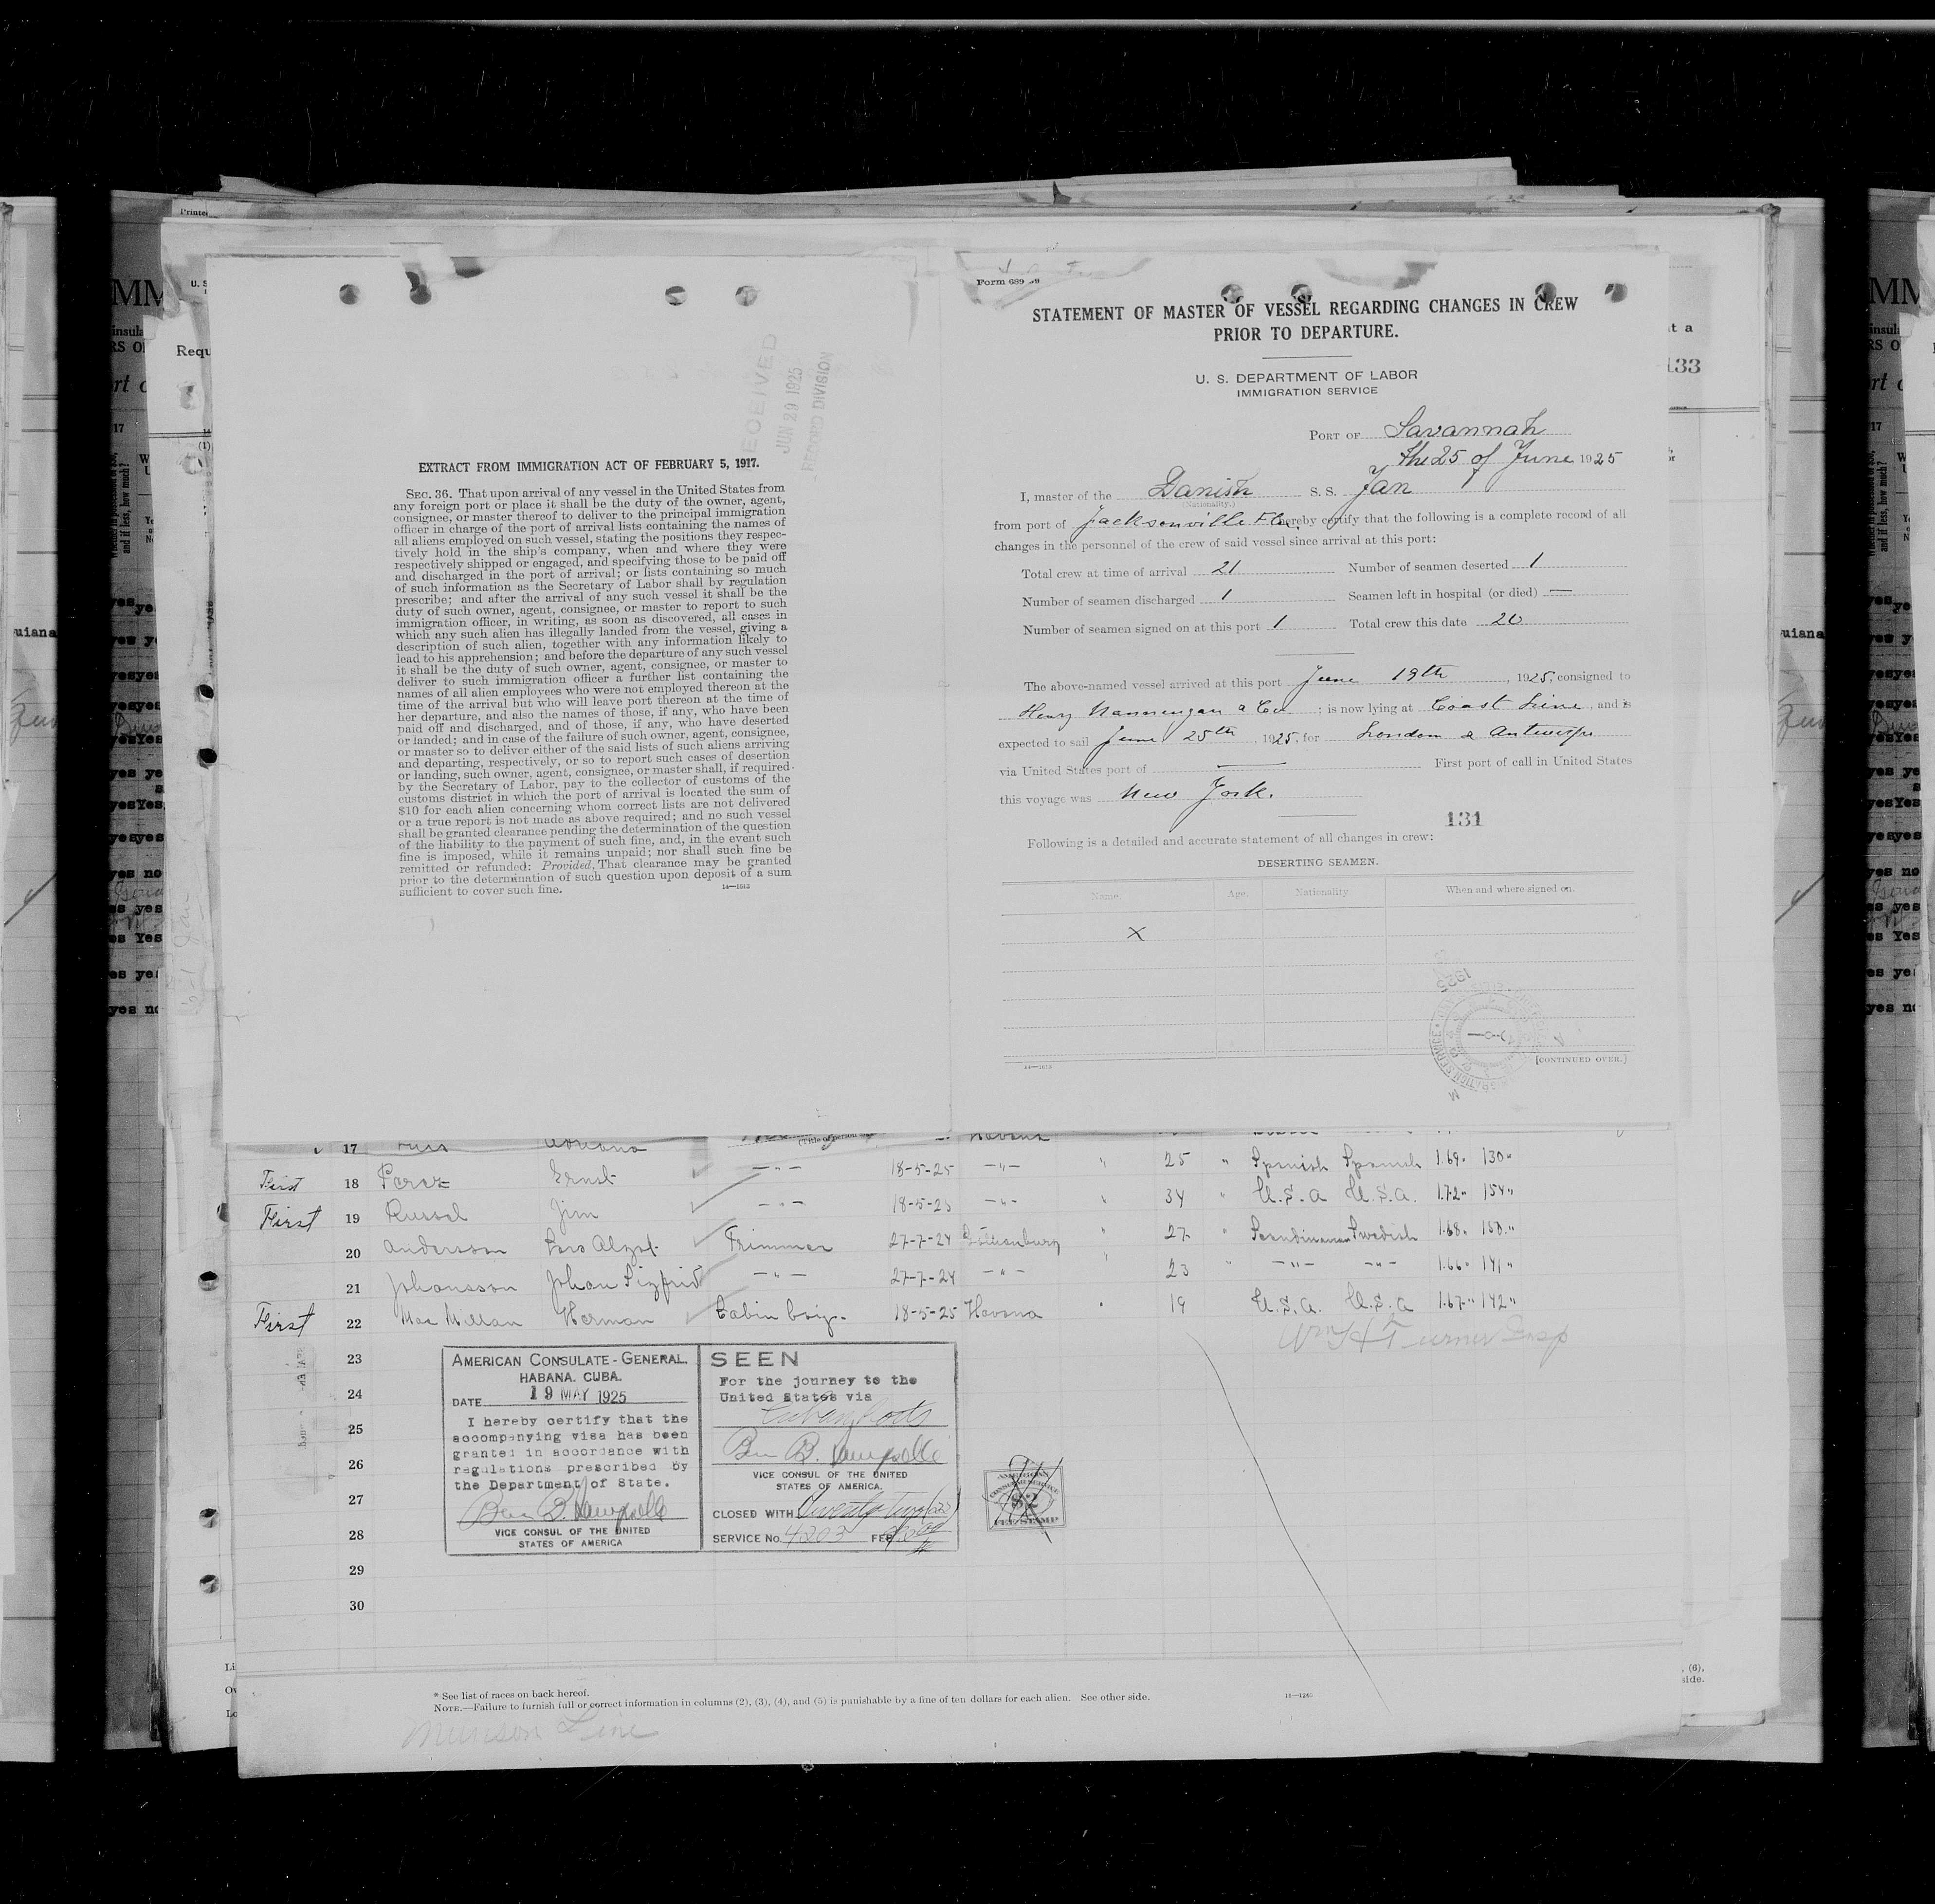 RECEIVED
JUN 29 1925
RECORD DIVISION
EXTRACT FROM IMMIGRATION ACT OF FEBRUARY 5, 1917.
SEC. 36. That upon arrival of any vessel in the United States from
any foreign port or place it shall be the duty of the owner, agent,
consignee, or master thereof to deliver to the principal immigration
officer in charge of the port of arrival lists containing the names of
all aliens employed on such vessel, stating the positions they respec-
tively hold in the ship's company, when and where they were
respectively shipped or engaged, and specifying those to be paid off
and discharged in the port of arrival; or lists containing so much
of such information as the Secretary of Labor shall by regulation
prescribe; and after the arrival of any such vessel it shall be the
duty of such owner, agent, consignee, or master to report to such
immigration officer, in writing, as soon as discovered, all cases in
which any such alien has illegally landed from the vessel, giving a
description of such alien, together with any information likely to
lead to his apprehension; and before the departure of any such vessel
it shall be the duty of such owner, agent, consignee, or master to
deliver to such immigration officer a further list containing the
names of all alien employees who were not employed thereon at the
time of the arrival but who will leave port thereon at the time of
her departure, and also the names of those, if any, who have been
paid off and discharged, and of those, if any, who have deserted
or landed; and in case of the failure of such owner, agent, consignee,
or master so to deliver either of the said lists of such aliens arriving
and departing, respectively, or so to report such cases of desertion
or landing, such owner, agent, consignee, or master shall, if required
by the Secretary of Labor, pay to the collector of customs of the
customs district in which the port of arrival is located the sum of
$10 for each alien concerning whom correct lists are not delivered
or a true report is not made as above required; and no such vessel
shall be granted clearance pending the determination of the question
of the liability to the payment of such fine, and, in the event such
fine is imposed, while it remains unpaid; nor shall such fine be
remitted or refunded: Provided, That clearance may be granted
prior to the determination of such question upon deposit of a sum
sufficient to cover such fine.
14—1512
Form 689
STATEMENT OF MASTER OF VESSEL REGARDING CHANGES IN CREW
PRIOR TO DEPARTURE.
U. S. DEPARTMENT OF LABOR
IMMIGRATION SERVICE
PORT OF Savannah
the 25 of June 1925
I, master of the Danish S. S. Jan
(Nationality.)
from port of Jacksonville Fla. hereby certify that the following is a complete record of all
changes in the personnel of the crew of said vessel since arrival at this port:
Total crew at time of arrival 21 Number of seamen deserted 1
Number of seamen discharged 1 Seamen left in hospital (or died) —
Number of seamen signed on at this port 1 Total crew this date 20
The above-named vessel arrived at this port June 19th, 1925, consigned to
Henry & Co ; is now lying at Coast Line, and is
expected to sail June 25th, 1925, for London & Antwerp
via United States port of — First port of call in United States
this voyage was New York.
131
Following is a detailed and accurate statement of all changes in crew:
DESERTING SEAMEN.
Name. Age. Nationality. When and where signed on.
X
[CONTINUED OVER.]
133
17 Havana
First 18 Perez Ernst —"— 18-5-25 —"— " 25 " Spanish Spanish 1.69" 130"
First 19 Russel Jim —"— 18-5-25 —"— " 34 " U.S.A U.S.A. 1.72" 154"
20 Andersson Trimmer 27-7-24 " 27 " Scandinavian Swedish 1.68"
21 Johansson Johan Sigfrid —"— 27-7-24 —"— 23 " —"— —"— 1.66" 141"
First 22 Mac Millan Herman Cabin boy. 18-5-25 Havana " 19 U.S.A. U.S.A 1.67" 142"
Wm H Turner Insp
23
24
25
26
27
28
29
30
AMERICAN CONSULATE-GENERAL.
HABANA. CUBA.
DATE 19 MAY 1925
I hereby certify that the
accompanying visa has been
granted in accordance with
regulations prescribed by
the Department of State.
VICE CONSUL OF THE UNITED
STATES OF AMERICA
SEEN
For the journey to the
United States via
Cuban ports
VICE CONSUL OF THE UNITED
STATES OF AMERICA.
CLOSED WITH Twenty Two (22)
SERVICE No. 4203 FEE
AMERICAN
CONSULAR SERVICE
$2
FEE STAMP
* See list of races on back hereof.
NOTE.—Failure to furnish full or correct information in columns (2), (3), (4), and (5) is punishable by a fine of ten dollars for each alien. See other side.
Munson Line